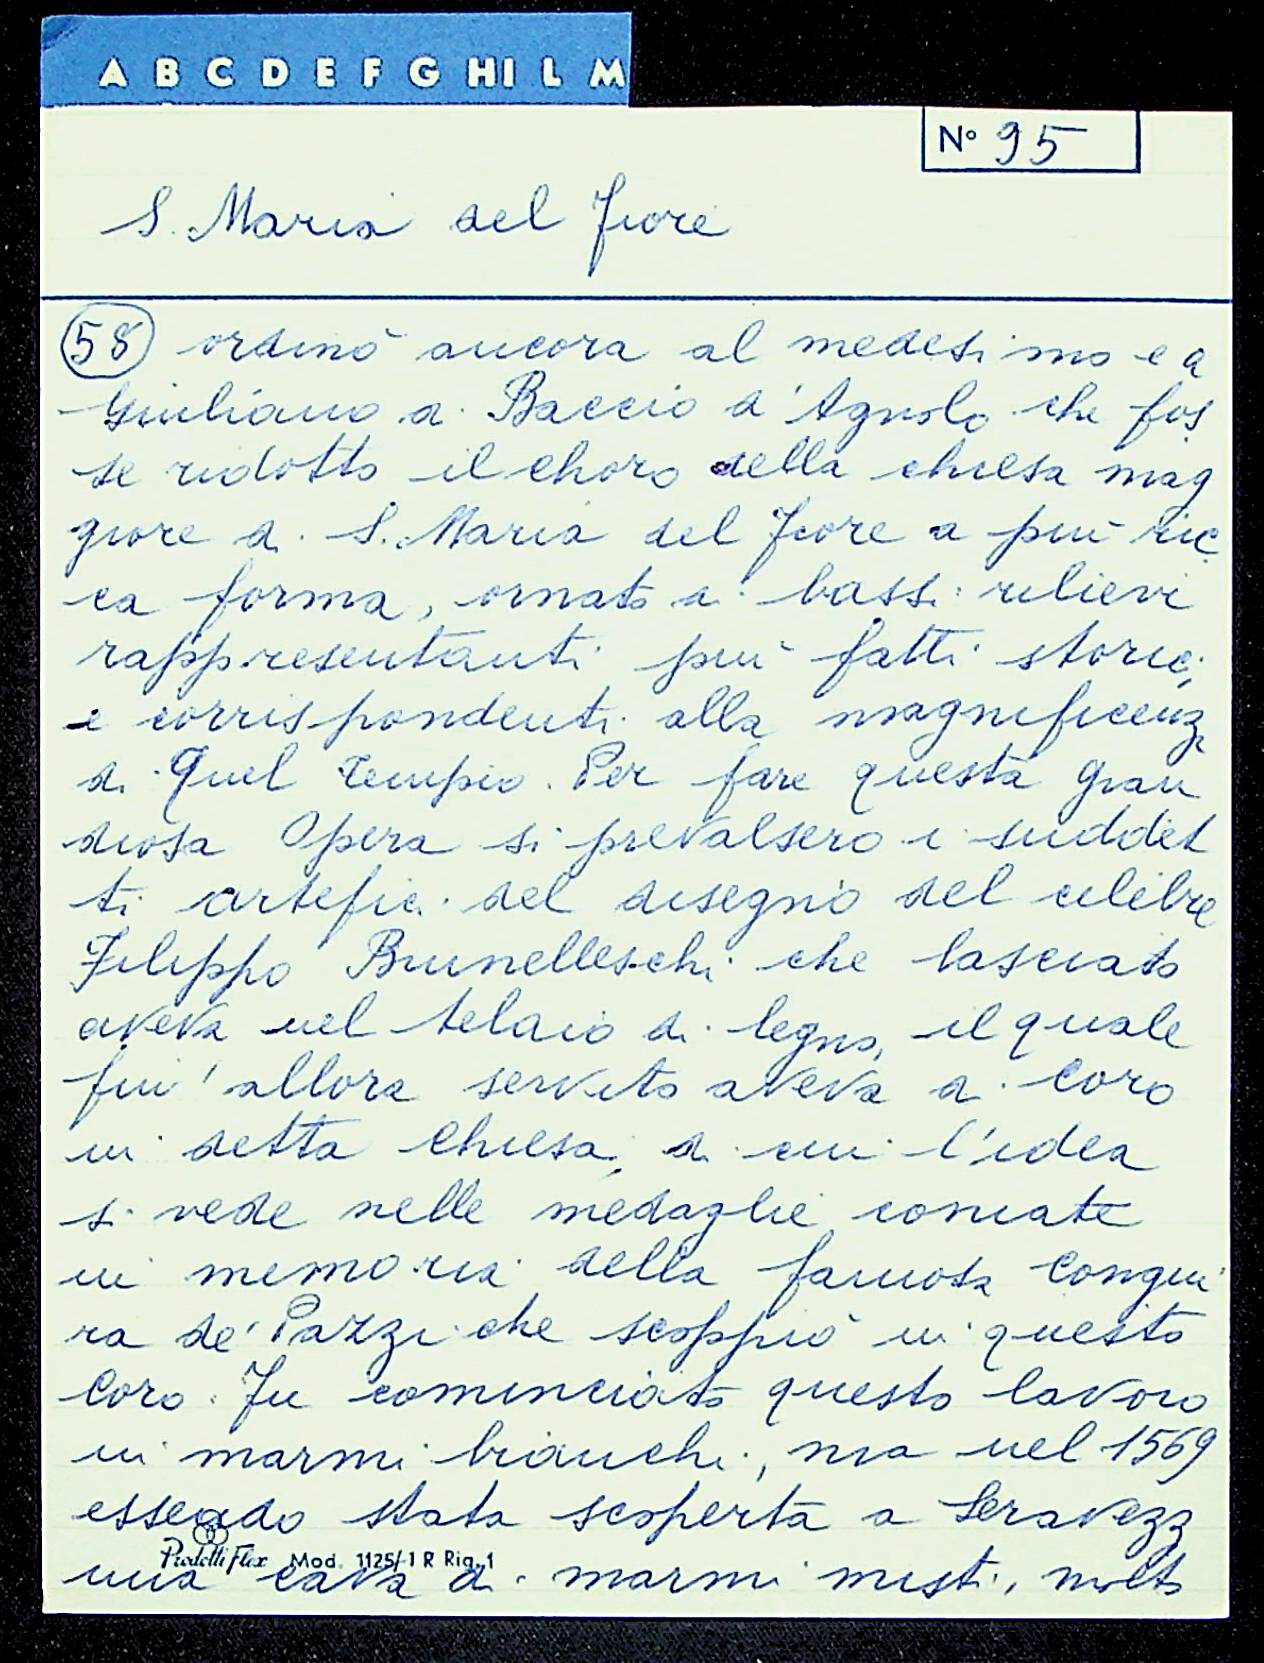 A B C D E F G HI L M
N° 95
S. Maria del Fiore
58 ordinò ancora al medesimo e a
Giuliano di Baccio d'Agnolo che fos
se ridotto il Choro della chiesa mag
giore di S. Maria del Fiore a più ric
ca forma, ornato di bassi rilievi
rappresentanti più fatti storici,
e corrispondenti alla magnificenz
di quel Tempio. Per fare questa gran
diosa Opera si prevalsero i suddet
ti artefici del disegno del celibre
Filippo Brunelleschi che lasciato
aveva nel telaio di legno, il quale
fin'allora servito aveva di Coro
in detta Chiesa, di cui l'idea
si vede nelle medaglie coniate
in memoria della famosa Congiu
ra de' Pazzi che scoppiò in questo
Coro. Fu cominciato questo lavoro
in marmi bianchi, ma nel 1569
essendo stata scoperta a Seravezz
Predelli Flex Mod. 1125/1 R Rig. 1
una cava di marmi misti, molto